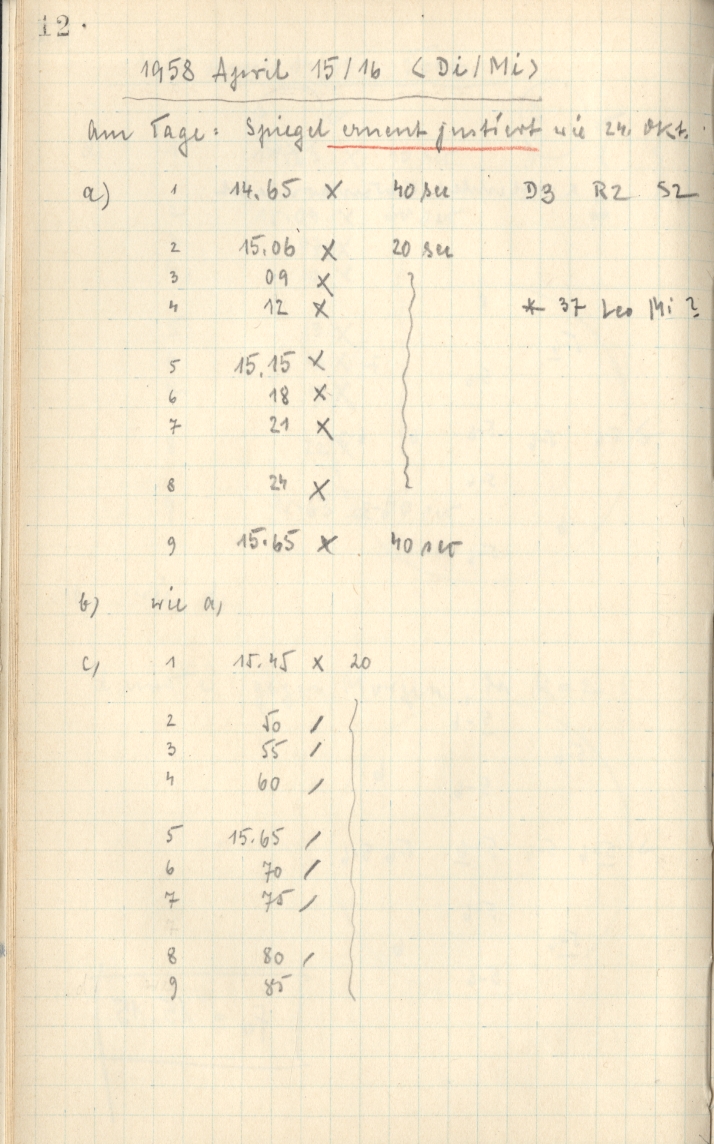 12.
1958 April 15/16 (Di/Mi)
Am Tage: Spiegel erneut justiert wie 24. Okt.
a) 1 14.65 x 40 sec D3 R2 S2
2 15.06 x 20 sec
3 09 x
4 12 x * 37 Leo Mi ?
5 15.15 x
6 18 x
7 21 x
8 24 x
9 15.65 x 40 sec
b) wie a,
c, 1 15.45 x 20
2 50 /
3 55 /
4 60 /
5 15.65 /
6 70 /
7 75 /
8 80 /
9 85